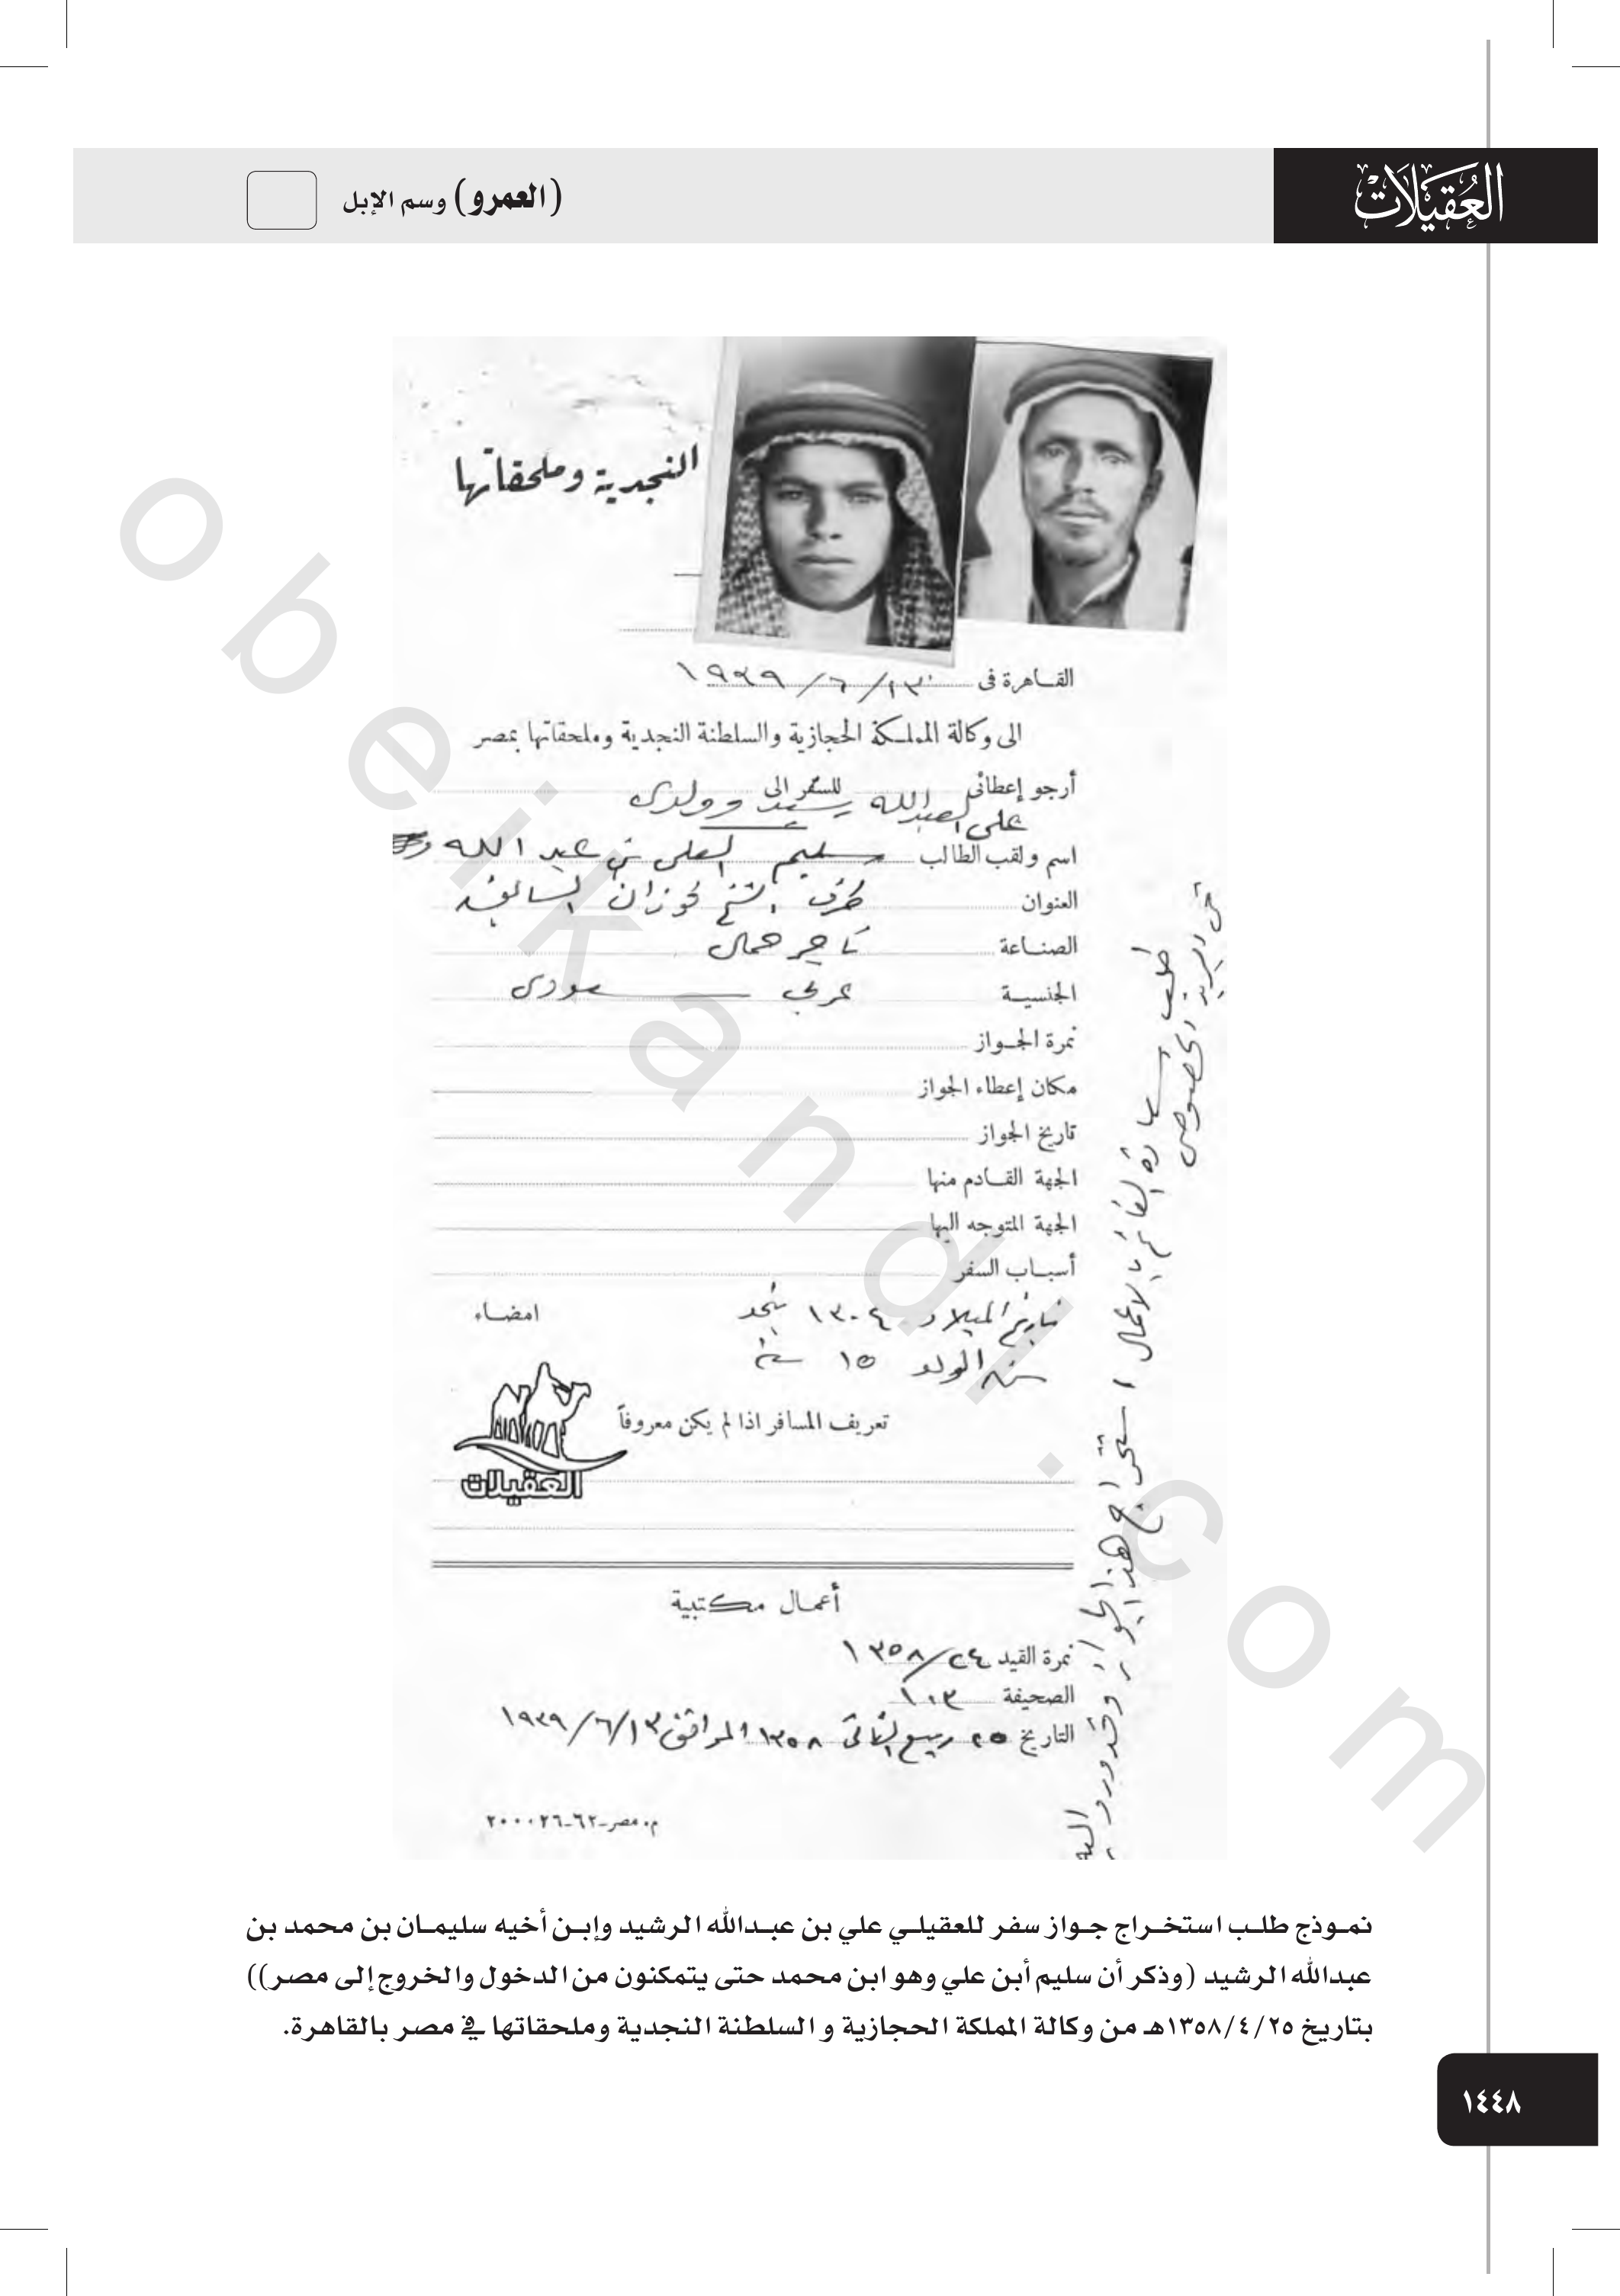 العُقَيْلَاتْ
(العمرو) وسم الإبل
النجدية وملحقاتها
القاهرة فى ١٩٣٩/٦/١٣
الى وكالة المملكة الحجازية والسلطنة النجدية وملحقاتها بمصر
أرجو إعطائى للسفر الى
على العبدالله رشيد وولدى
اسم ولقب الطالب سليم العلى بن عبد الله
العنوان طرف الشيخ فوزان السابق
الصناعة تاجر جمال
الجنسية عربى سعودى
نمرة الجواز
مكان إعطاء الجواز
تاريخ الجواز
الجهة القادم منها
الجهة المتوجه اليها
أسباب السفر
تاريخ الميلاد ١٣٠٤ نجد
امضاء
سن الولد ١٥ سنة
تعريف المسافر اذا لم يكن معروفاً
العقيلات
أعمال مكتبية
نمرة القيد ١٣٥٨/٢٤
الصحيفة ١٠٣
التاريخ ٢٥ ربيع الثانى ١٣٥٨ الموافق ١٩٣٩/٦/١٣
م. مصر-٦٢-٢٠٠٠٢٦
طلب سعادة القائم بالاعمال استخراج هذا الجواز وقد ورد
نموذج طلب استخراج جواز سفر للعقيلي علي بن عبدالله الرشيد وإبن أخيه سليمان بن محمد بن
عبدالله الرشيد (وذكر أن سليم أبن علي وهو ابن محمد حتى يتمكنون من الدخول والخروج إلى مصر))
بتاريخ ١٣٥٨/٤/٢٥هـ من وكالة المملكة الحجازية و السلطنة النجدية وملحقاتها في مصر بالقاهرة.
١٤٤٨
obeikandi.com